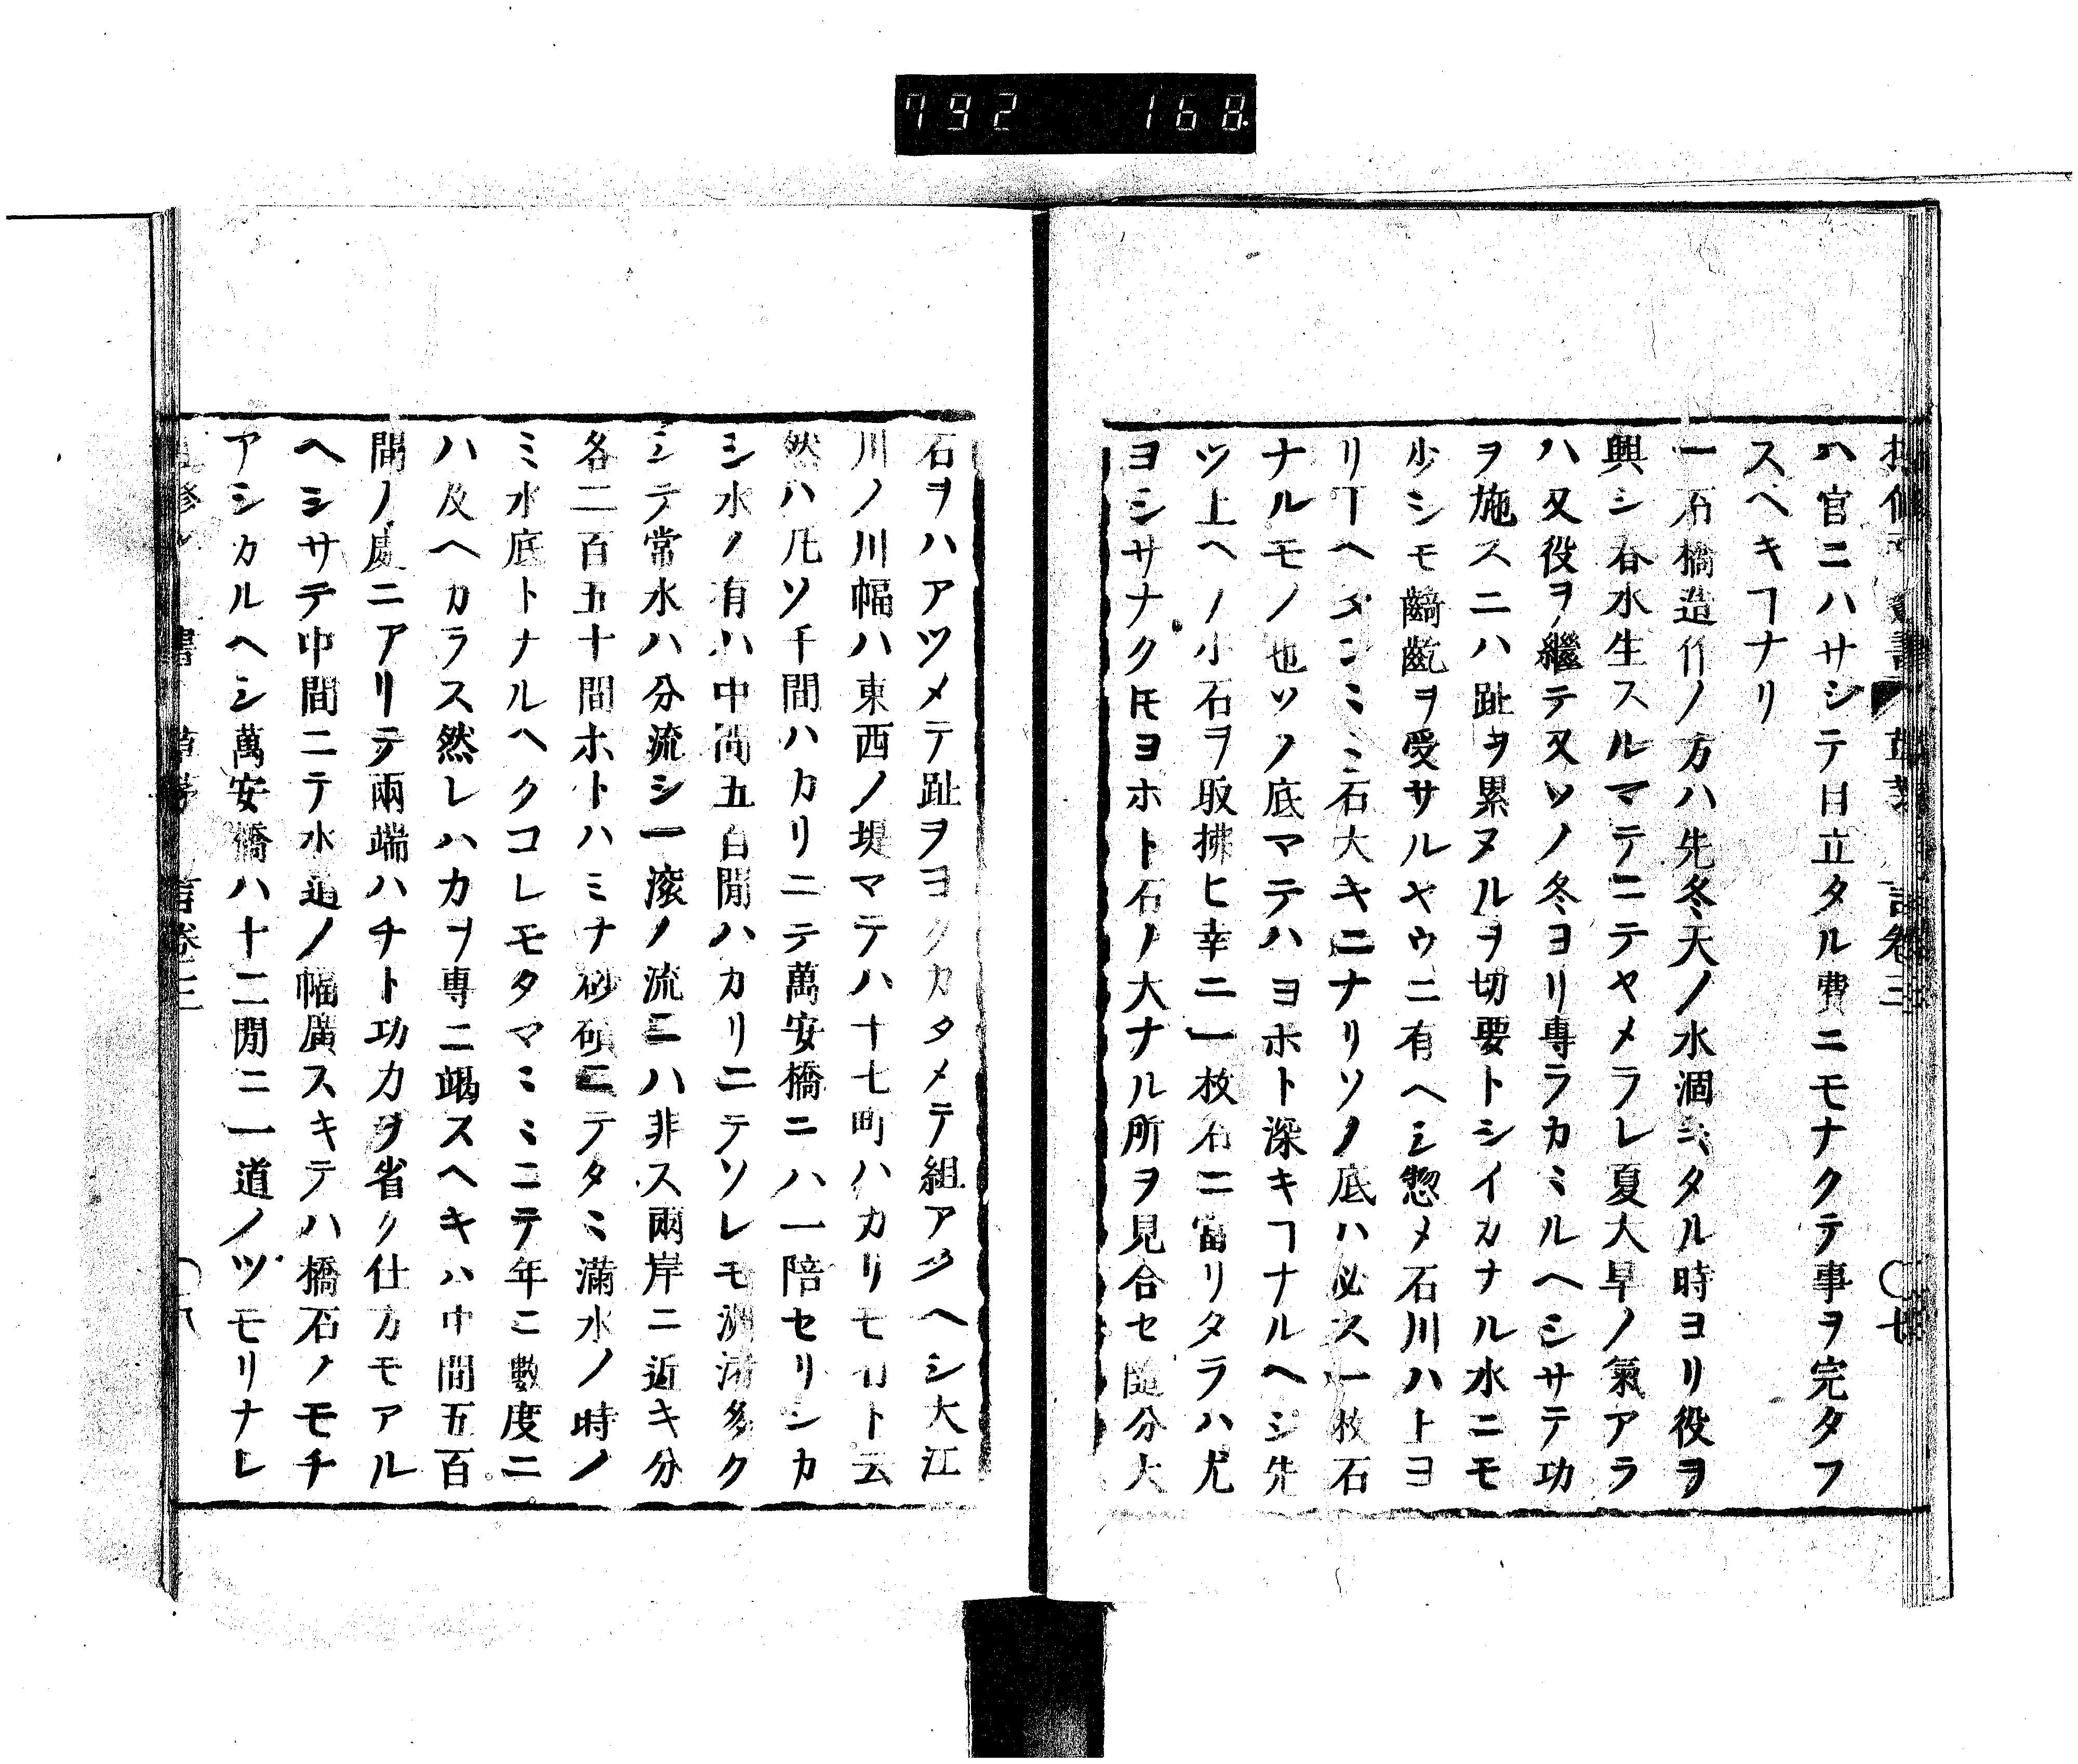 792 168
ハ官ニハサシテ日立タル費ニモナクテ事ヲ完タフ
スヘキヿナリ
一石橋造作ノ方ハ先冬天ノ水涸ミタル時ヨリ役ヲ
興シ春水生スルマテニテヤメラレ夏大旱ノ氣アラ
ハ又役ヲ繼テ又ソノ冬ヨリ專ラカミルヘシサテ功
ヲ施スニハ趾ヲ累ヌルヲ切要トシイカナル水ニモ
少シモ齮齕ヲ受サルヤウニ有ヘシ惣メ石川ハトヨ
リ丅ヘタンミミ石大キニナリソノ底ハ必ス一枚石
ナルモノ也ソノ底マテハヨホト深キヿナルヘシ先
ツ上ヘノ小石ヲ取拂ヒ幸ニ一枚石ニ當リタラハ尤
ヨシサナクトモヨホト石ノ大ナル所ヲ見合セ隨分大
石ヲハアツメテ趾ヲヨクカタメテ組アクヘシ大江
川ノ川幅ハ東西ノ堤マテハ十七町ハカリモ有ト云
然ハ凡ソ千間ハカリニテ萬安橋ニハ一陪セリシカ
シ水ノ有ハ中間五百間ハカリニテソレモ洲渚多ク
シテ常水ハ分流シ一滾ノ流ニハ非ス兩岸ニ近キ分
各二百五十間ホトハミナ砂磧ニテタミ滿水ノ時ノ
ミ水底トナルヘクコレモタマミミニテ年ニ數度ニ
ハ及ヘカラス然レハカヲ專ニ竭スヘキハ中間五百
間ノ處ニアリテ兩端ハチト功力ヲ省ク仕方モアル
ヘシサテ中間ニテ水道ノ幅廣スキテハ橋石ノモチ
アシカルヘシ萬安橋ハ十二間ニ一道ノツモリナレ